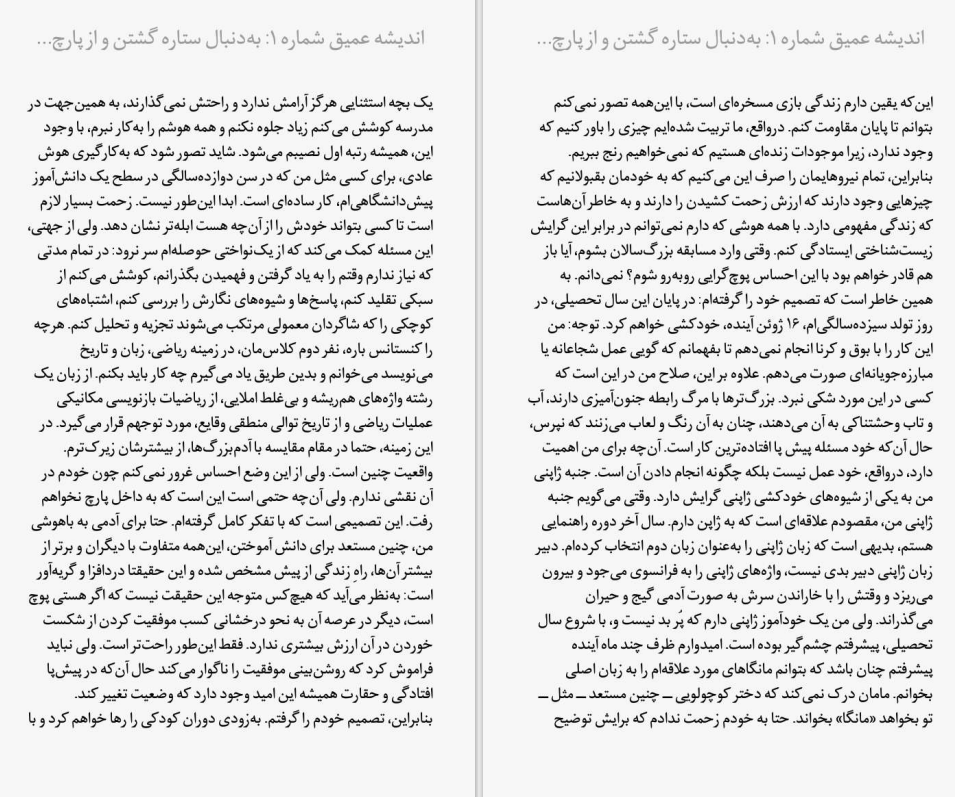 اندیشه عمیق شماره ۱: به‌دنبال ستاره گشتن و از پارچ...
یک بچه استثنایی هرگز آرامش ندارد و راحتش نمی‌گذارند، به همین‌جهت در
مدرسه کوشش می‌کنم زیاد جلوه نکنم و همه هوشم را به‌کار نبرم، با وجود
این، همیشه رتبه اول نصیبم می‌شود. شاید تصور شود که به‌کارگیری هوش
عادی، برای کسی مثل من که در سن دوازده‌سالگی در سطح یک دانش‌آموز
پیش‌دانشگاهی‌ام، کار ساده‌ای است. ابدا این‌طور نیست. زحمت بسیار لازم
است تا کسی بتواند خودش را از آن‌چه هست ابله‌تر نشان دهد. ولی از جهتی،
این مسئله کمک می‌کند که از یک‌نواختی حوصله‌ام سر نرود: در تمام مدتی
که نیاز ندارم وقتم را به یاد گرفتن و فهمیدن بگذرانم، کوشش می‌کنم از
سبکی تقلید کنم، پاسخ‌ها و شیوه‌های نگارش را بررسی کنم، اشتباه‌های
کوچکی را که شاگردان معمولی مرتکب می‌شوند تجزیه و تحلیل کنم. هرچه
را کنستانس باره، نفر دوم کلاس‌مان، در زمینه ریاضی، زبان و تاریخ
می‌نویسد می‌خوانم و بدین طریق یاد می‌گیرم چه کار باید بکنم. از زبان یک
رشته واژه‌های هم‌ریشه و بی‌غلط املایی، از ریاضیات بازنویسی مکانیکی
عملیات ریاضی و از تاریخ توالی منطقی وقایع، مورد توجهم قرار می‌گیرد. در
این زمینه، حتما در مقام مقایسه با آدم‌بزرگ‌ها، از بیشترشان زیرک‌ترم.
واقعیت چنین است. ولی از این وضع احساس غرور نمی‌کنم چون خودم در
آن نقشی ندارم. ولی آن‌چه حتمی است این است که به داخل پارچ نخواهم
رفت. این تصمیمی است که با تفکر کامل گرفته‌ام. حتا برای آدمی به باهوشی
من، چنین مستعد برای دانش آموختن، این‌همه متفاوت با دیگران و برتر از
بیشتر آن‌ها، راهِ زندگی از پیش مشخص شده و این حقیقتا دردافزا و گریه‌آور
است: به‌نظر می‌آید که هیچ‌کس متوجه این حقیقت نیست که اگر هستی پوچ
است، دیگر در عرصه آن به نحو درخشانی کسب موفقیت کردن از شکست
خوردن در آن ارزش بیشتری ندارد. فقط این‌طور راحت‌تر است. ولی نباید
فراموش کرد که روشن‌بینی موفقیت را ناگوار می‌کند حال آن‌که در پیش‌پا
افتادگی و حقارت همیشه این امید وجود دارد که وضعیت تغییر کند.
بنابراین، تصمیم خودم را گرفتم. به‌زودی دوران کودکی را رها خواهم کرد و با
اندیشه عمیق شماره ۱: به‌دنبال ستاره گشتن و از پارچ...
این‌که یقین دارم زندگی بازی مسخره‌ای است، با این‌همه تصور نمی‌کنم
بتوانم تا پایان مقاومت کنم. درواقع، ما تربیت شده‌ایم چیزی را باور کنیم که
وجود ندارد، زیرا موجودات زنده‌ای هستیم که نمی‌خواهیم رنج ببریم.
بنابراین، تمام نیروهایمان را صرف این می‌کنیم که به خودمان بقبولانیم که
چیزهایی وجود دارند که ارزش زحمت کشیدن را دارند و به خاطر آن‌هاست
که زندگی مفهومی دارد. با همه هوشی که دارم نمی‌توانم در برابر این گرایش
زیست‌شناختی ایستادگی کنم. وقتی وارد مسابقه بزرگ‌سالان بشوم، آیا باز
هم قادر خواهم بود با این احساس پوچ‌گرایی روبه‌رو شوم؟ نمی‌دانم. به
همین خاطر است که تصمیم خود را گرفته‌ام: در پایان این سال تحصیلی، در
روز تولد سیزده‌سالگی‌ام، ۱۶ ژوئن آینده، خودکشی خواهم کرد. توجه: من
این کار را با بوق و کرنا انجام نمی‌دهم تا بفهمانم که گویی عمل شجاعانه یا
مبارزه‌جویانه‌ای صورت می‌دهم. علاوه بر این، صلاح من در این است که
کسی در این مورد شکی نبرد. بزرگ‌ترها با مرگ رابطه جنون‌آمیزی دارند، آب
و تاب وحشتناکی به آن می‌دهند، چنان به آن رنگ و لعاب می‌زنند که نپرس،
حال آن‌که خود مسئله پیش پا افتاده‌ترین کار است. آن‌چه برای من اهمیت
دارد، درواقع، خود عمل نیست بلکه چگونه انجام دادن آن است. جنبه ژاپنی
من به یکی از شیوه‌های خودکشی ژاپنی گرایش دارد. وقتی می‌گویم جنبه
ژاپنی من، مقصودم علاقه‌ای است که به ژاپن دارم. سال آخر دوره راهنمایی
هستم، بدیهی است که زبان ژاپنی را به‌عنوان زبان دوم انتخاب کرده‌ام. دبیر
زبان ژاپنی دبیر بدی نیست، واژه‌های ژاپنی را به فرانسوی می‌جود و بیرون
می‌ریزد و وقتش را با خاراندن سرش به صورت آدمی گیج و حیران
می‌گذراند. ولی من یک خودآموز ژاپنی دارم که پُر بد نیست و، با شروع سال
تحصیلی، پیشرفتم چشم‌گیر بوده است. امیدوارم ظرف چند ماه آینده
پیشرفتم چنان باشد که بتوانم مانگاهای مورد علاقه‌ام را به زبان اصلی
بخوانم. مامان درک نمی‌کند که دختر کوچولویی ــ چنین مستعد ــ مثل ــ
تو بخواهد «مانگا» بخواند. حتا به خودم زحمت ندادم که برایش توضیح